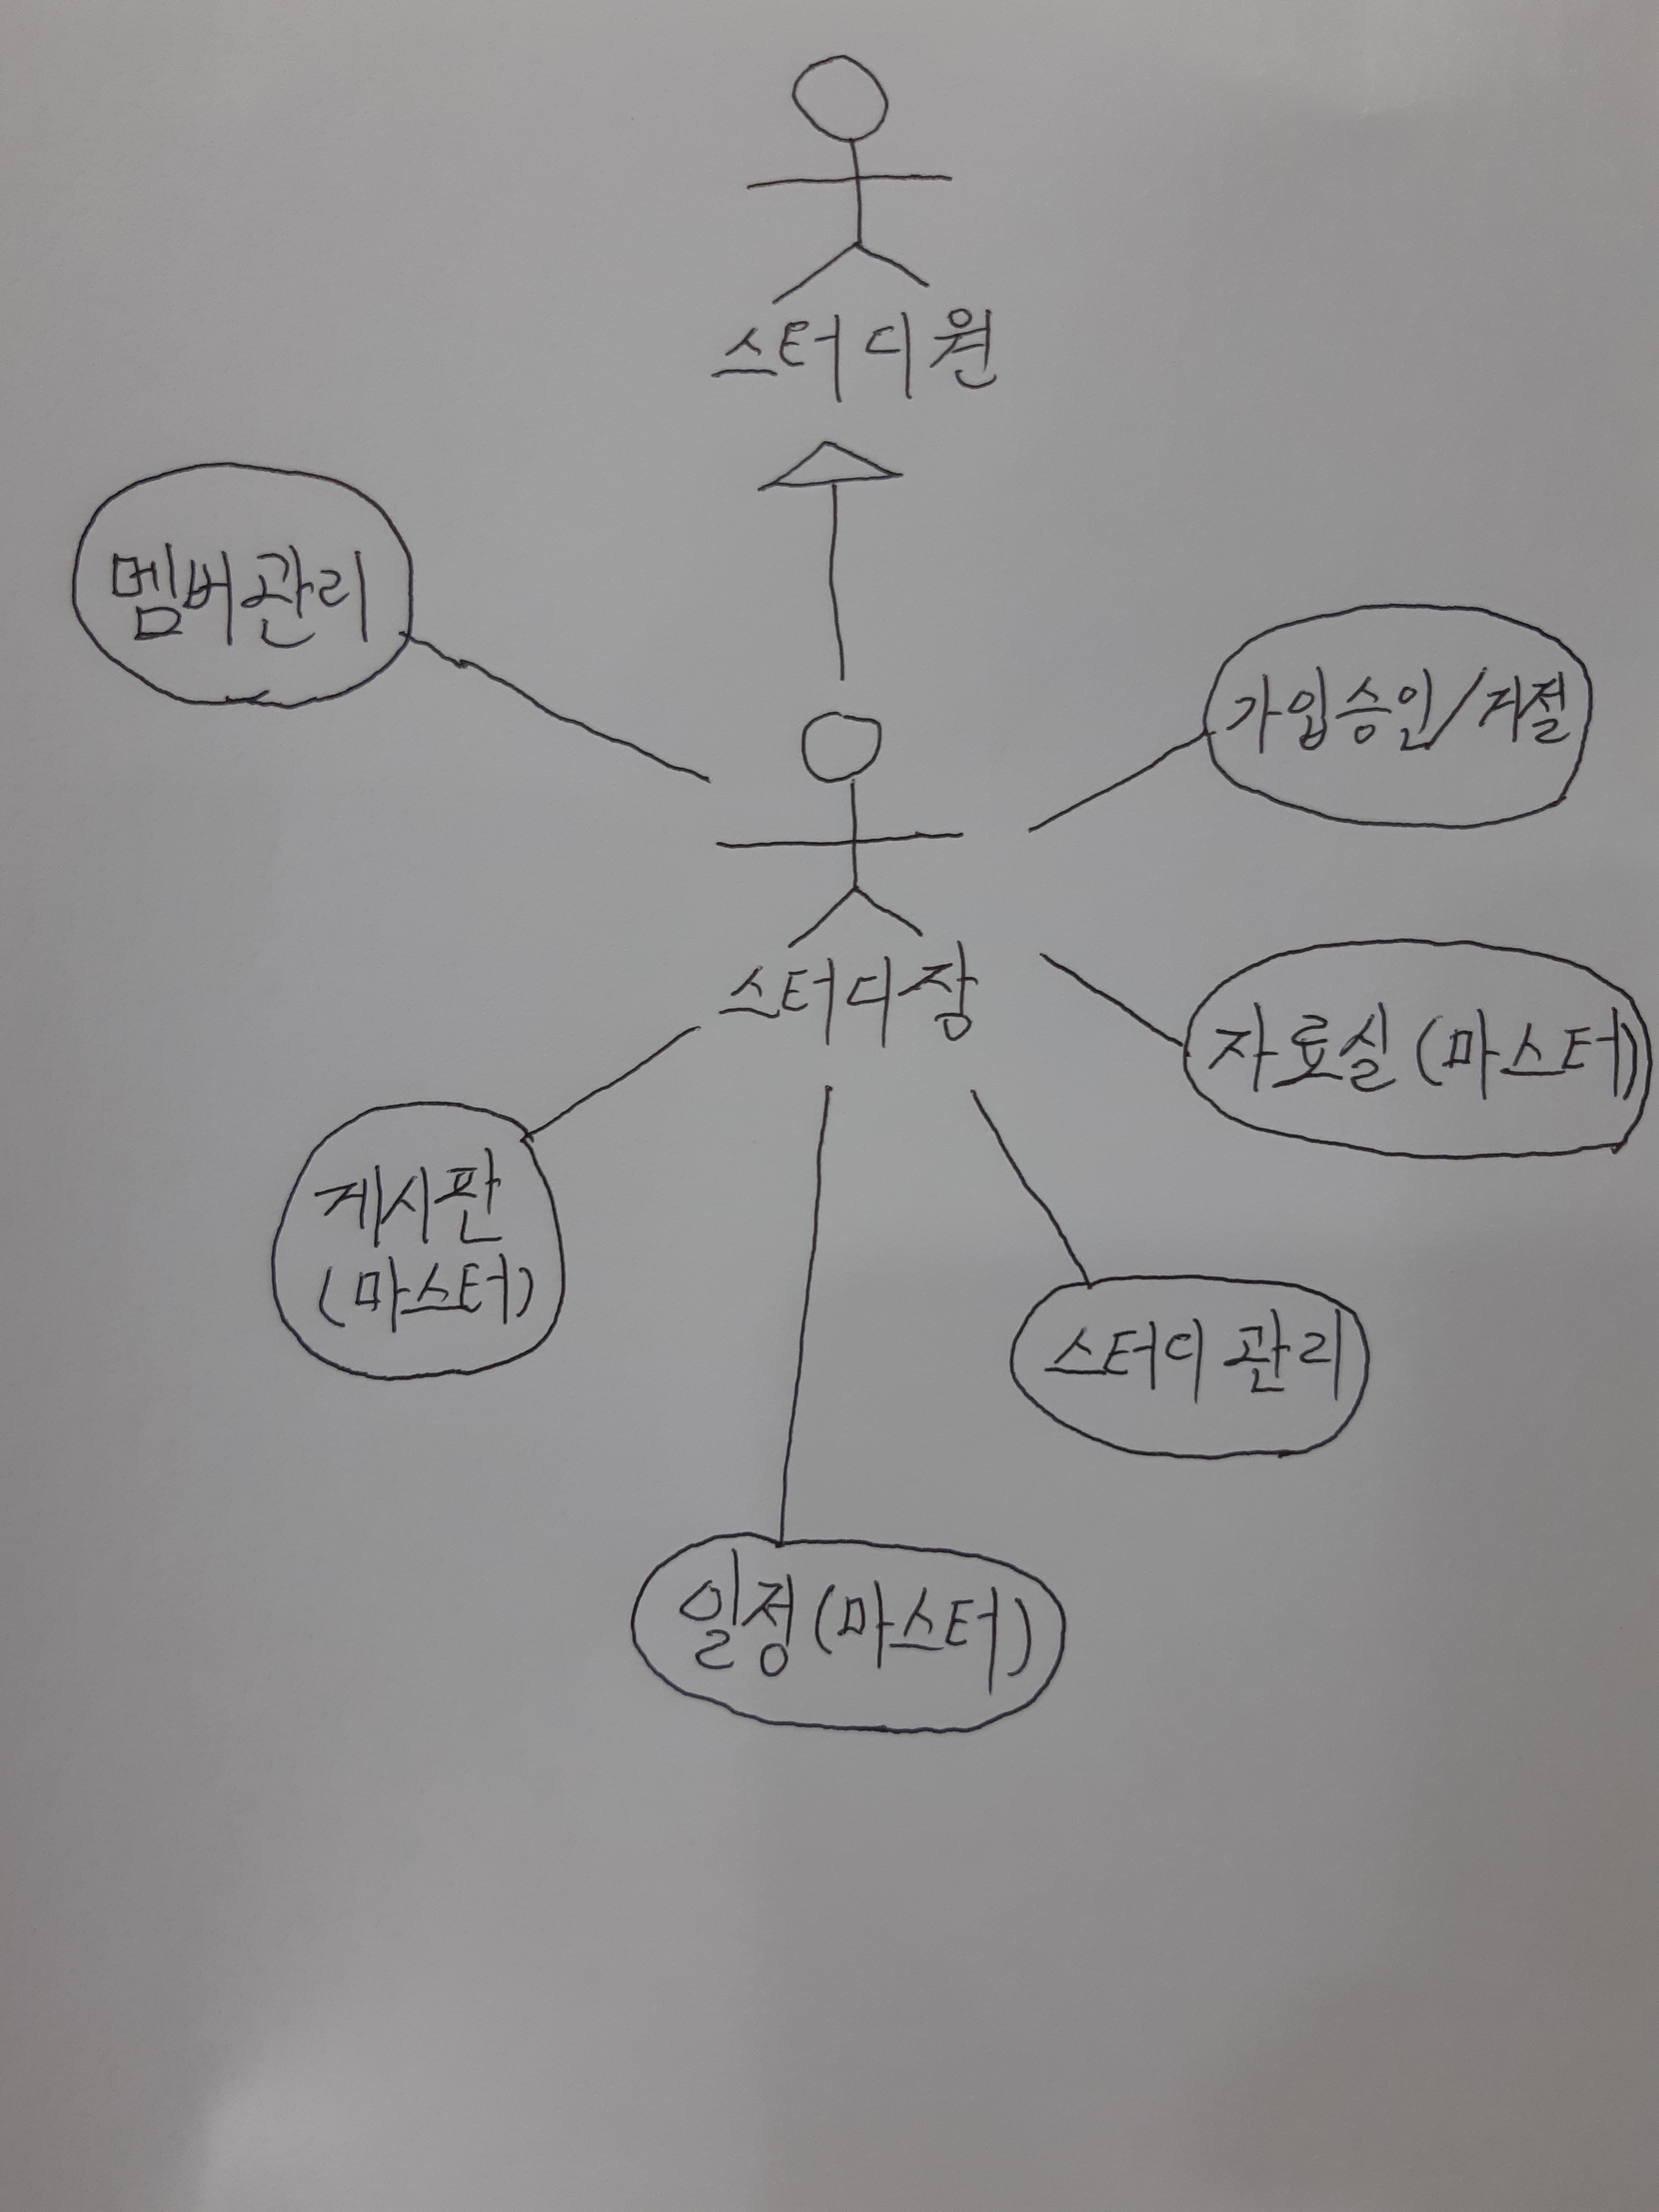 스터디원
멤버관리
가입승인/거절
스터디장
자료실(마스터)
게시판
(마스터)
스터디 관리
일정(마스터)